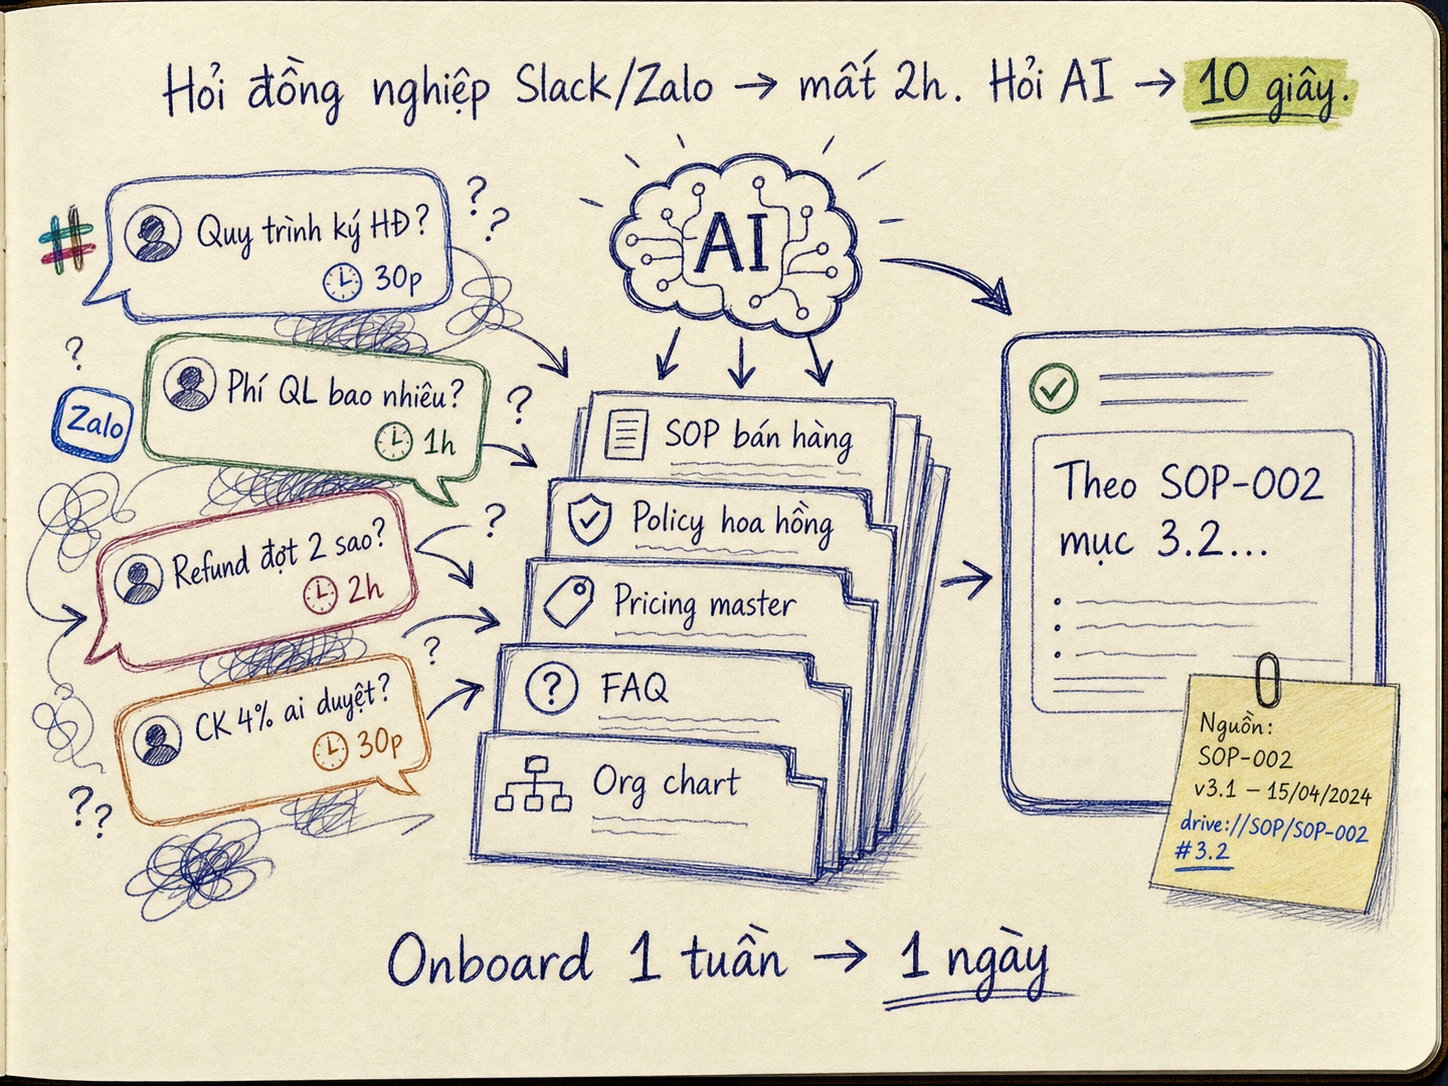 Hỏi đồng nghiệp Slack/Zalo → mất 2h. Hỏi AI → 10 giây.
Quy trình ký HĐ?
30p
Zalo
Phí QL bao nhiêu?
1h
Refund đợt 2 sao?
2h
CK 4% ai duyệt?
30p
AI
SOP bán hàng
Policy hoa hồng
Pricing master
FAQ
Org chart
Theo SOP-002
mục 3.2...
Nguồn:
SOP-002
v3.1 – 15/04/2024
drive://SOP/SOP-002
#3.2
Onboard 1 tuần → 1 ngày